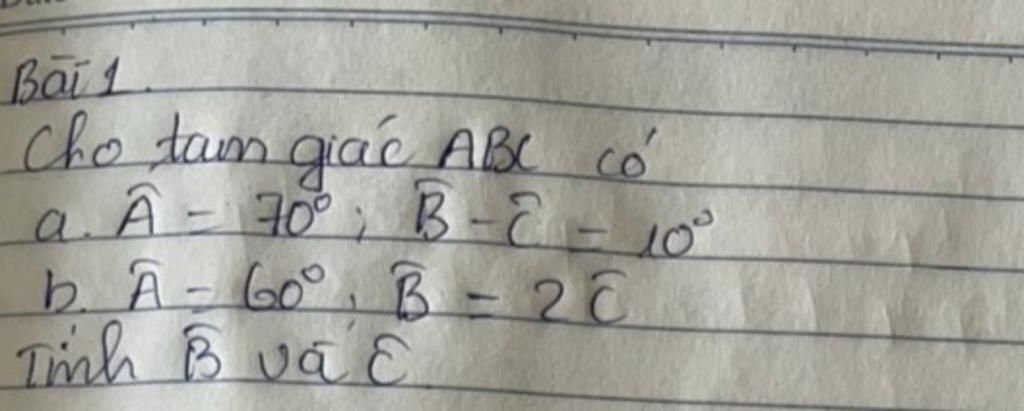 Bài 1.
Cho tam giác ABC có
a. Â = 70°; B̂ - Ĉ = 10°
b. Â = 60°; B̂ = 2Ĉ
Tính B̂ và Ĉ